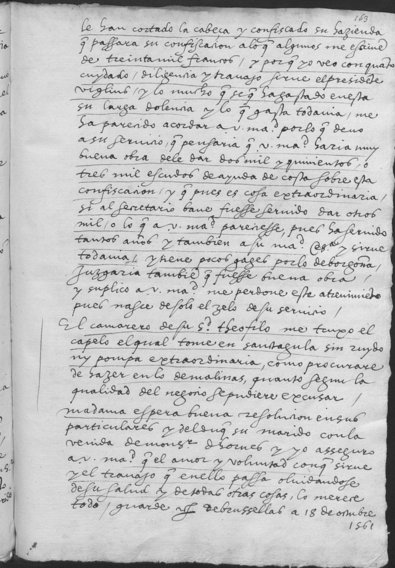 163
le han cortado la cabeça y confiscado su hazienda
q̃ passara su confiscacion a lo q̃ algunos me escriue
de treinta mil francos / y por q̃ yo veo con quãto
cuydado / diligencia y trauajo sirue el presidẽte
viglius / y lo mucho q̃ se q̃ ha gastado en esta
su larga dolencia y lo q̃ gasta todauia / me
ha parecido acordar a v. mag.d por lo q̃ deuo
a su seruicio / q̃ pensaria q̃ v. mag.d haria muy
buena obra de le dar dos mil y quinientos o
tres mil escudos de ayuda de costa sobre esta
confiscacion / y q̃ pues es cosa extraordinaria /
si al secretario baue fuesse seruido dar otros
mil / o lo q̃ a v. mag.d pareciesse, pues ha seruido
tantos años y tambien a su mag.d y sirue
todauia / y tiene pocos gages por lo de borgoña /
Juzgaria tambiẽ q̃ fuesse buena obra /
y suplico a v. mag.d me perdone este atreuimiẽto
pues nasce de solo el zelo de su seruicio /
El camarero de su S.d theofilo me truxo el
capelo el qual tome en santa gula sin ruydo
ny pompa extraordinaria, como procurare
de hazer en lo de malinas, quanto segun la
qualidad del negocio se pudiere excusar /
madama espera buena resolucion en sus
particulares y del duq̃ su marido con la
venida de mons.r de hornes y yo asseguro
a v. mag.d q̃ el amor y voluntad con q̃ sirue
y el trauajo q̃ en ello passa oluidandose
de su salud y de todas otras cosas, lo merece
todo / guarde de brussellas a 18 de otubre
1561